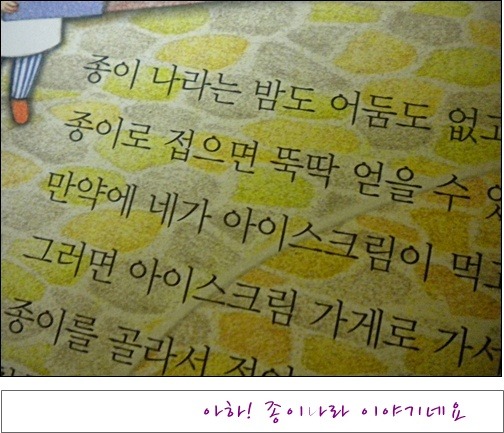 종이 나라는 밤도 어둠도 없고
종이로 접으면 뚝딱 얻을 수
만약에 네가 아이스크림이 먹고
그러면 아이스크림 가게로 가서
종이를 골라서 접어
아하! 종이나라 이야기네요